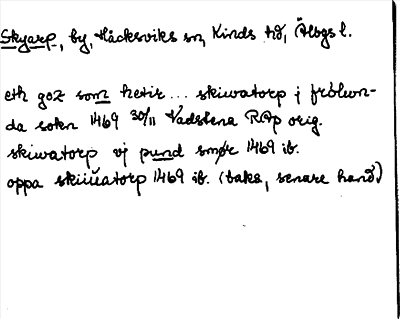 Skyarp, by, Håcksviks sn, Kinds hd, Älvgs l.
eth goz som hetir ... skiwatorp j frölwn-
da sokn 1469 30/11 Vadstena RAp orig.
skiwatorp vj pund smør 1469 ib.
oppa skiiwatorp 1469 ib. (baks, senare hand)